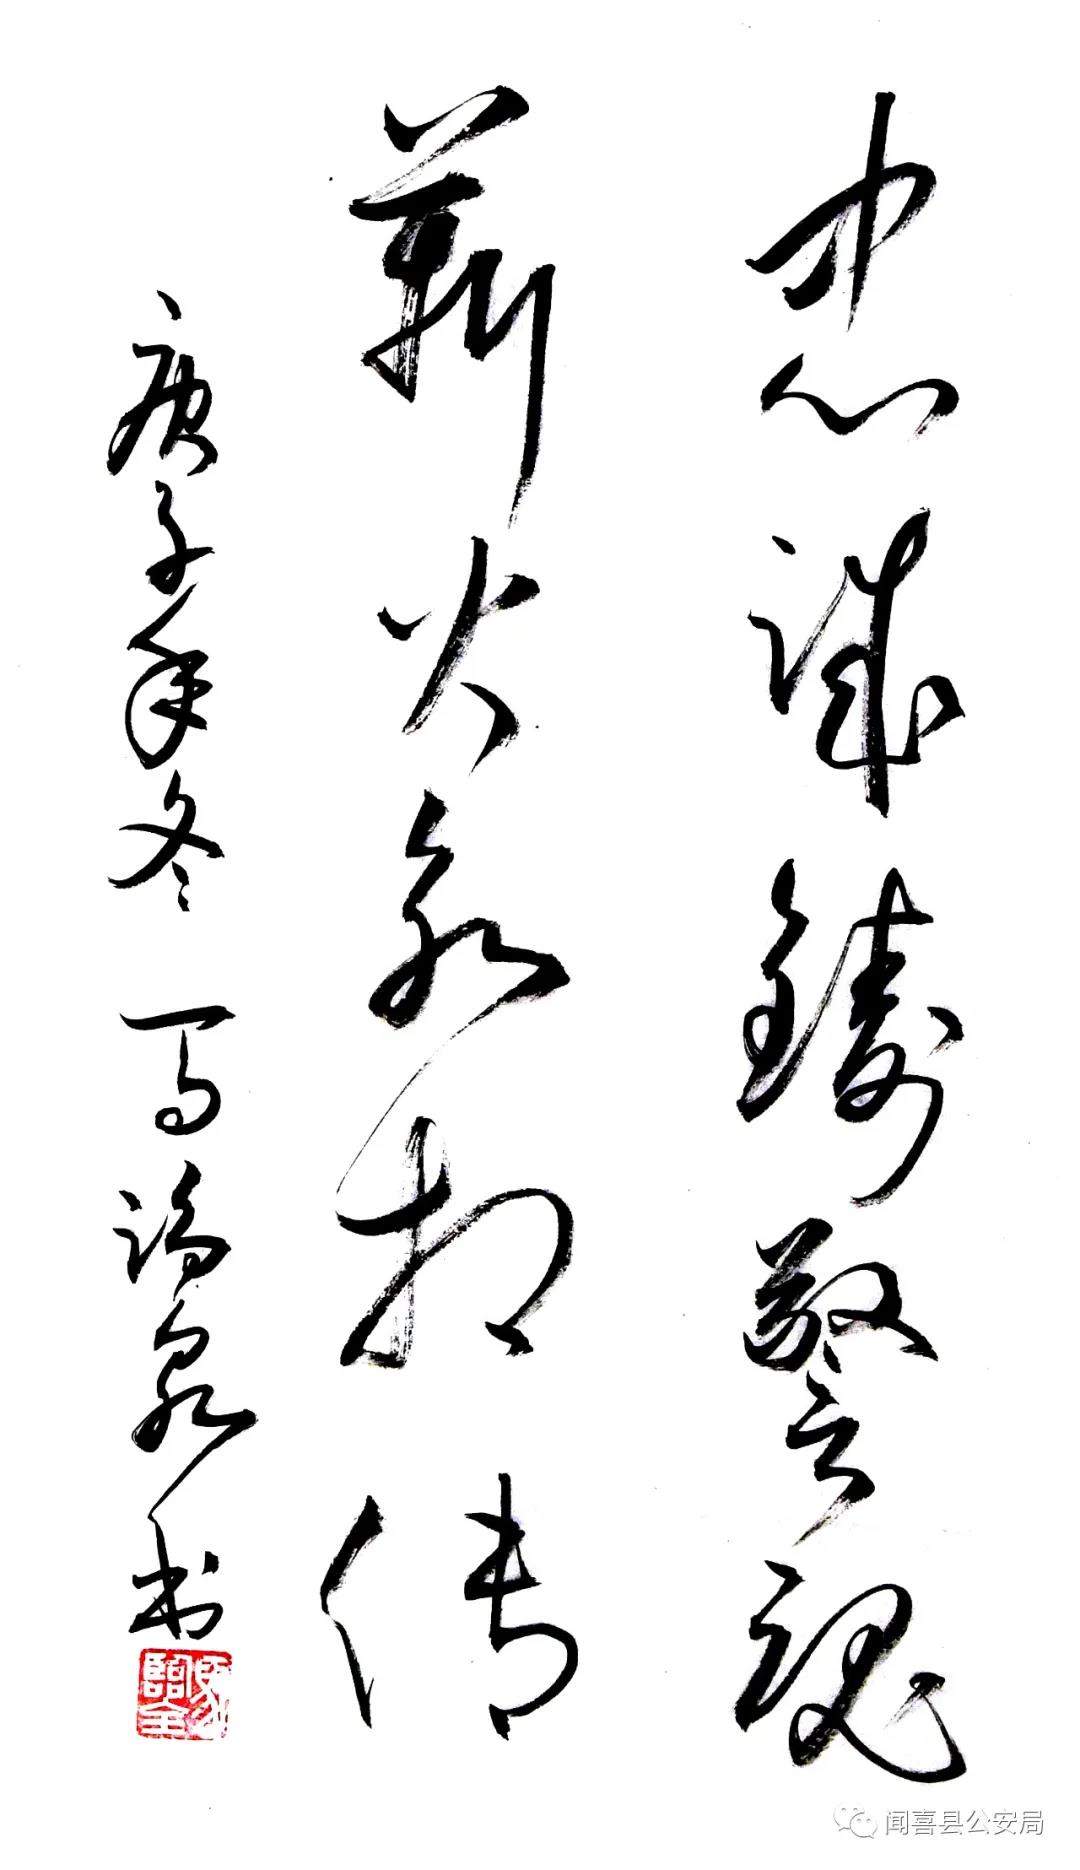 忠诚铸警魂
薪火永相传
庚子年冬 马 泉书
闻喜县公安局